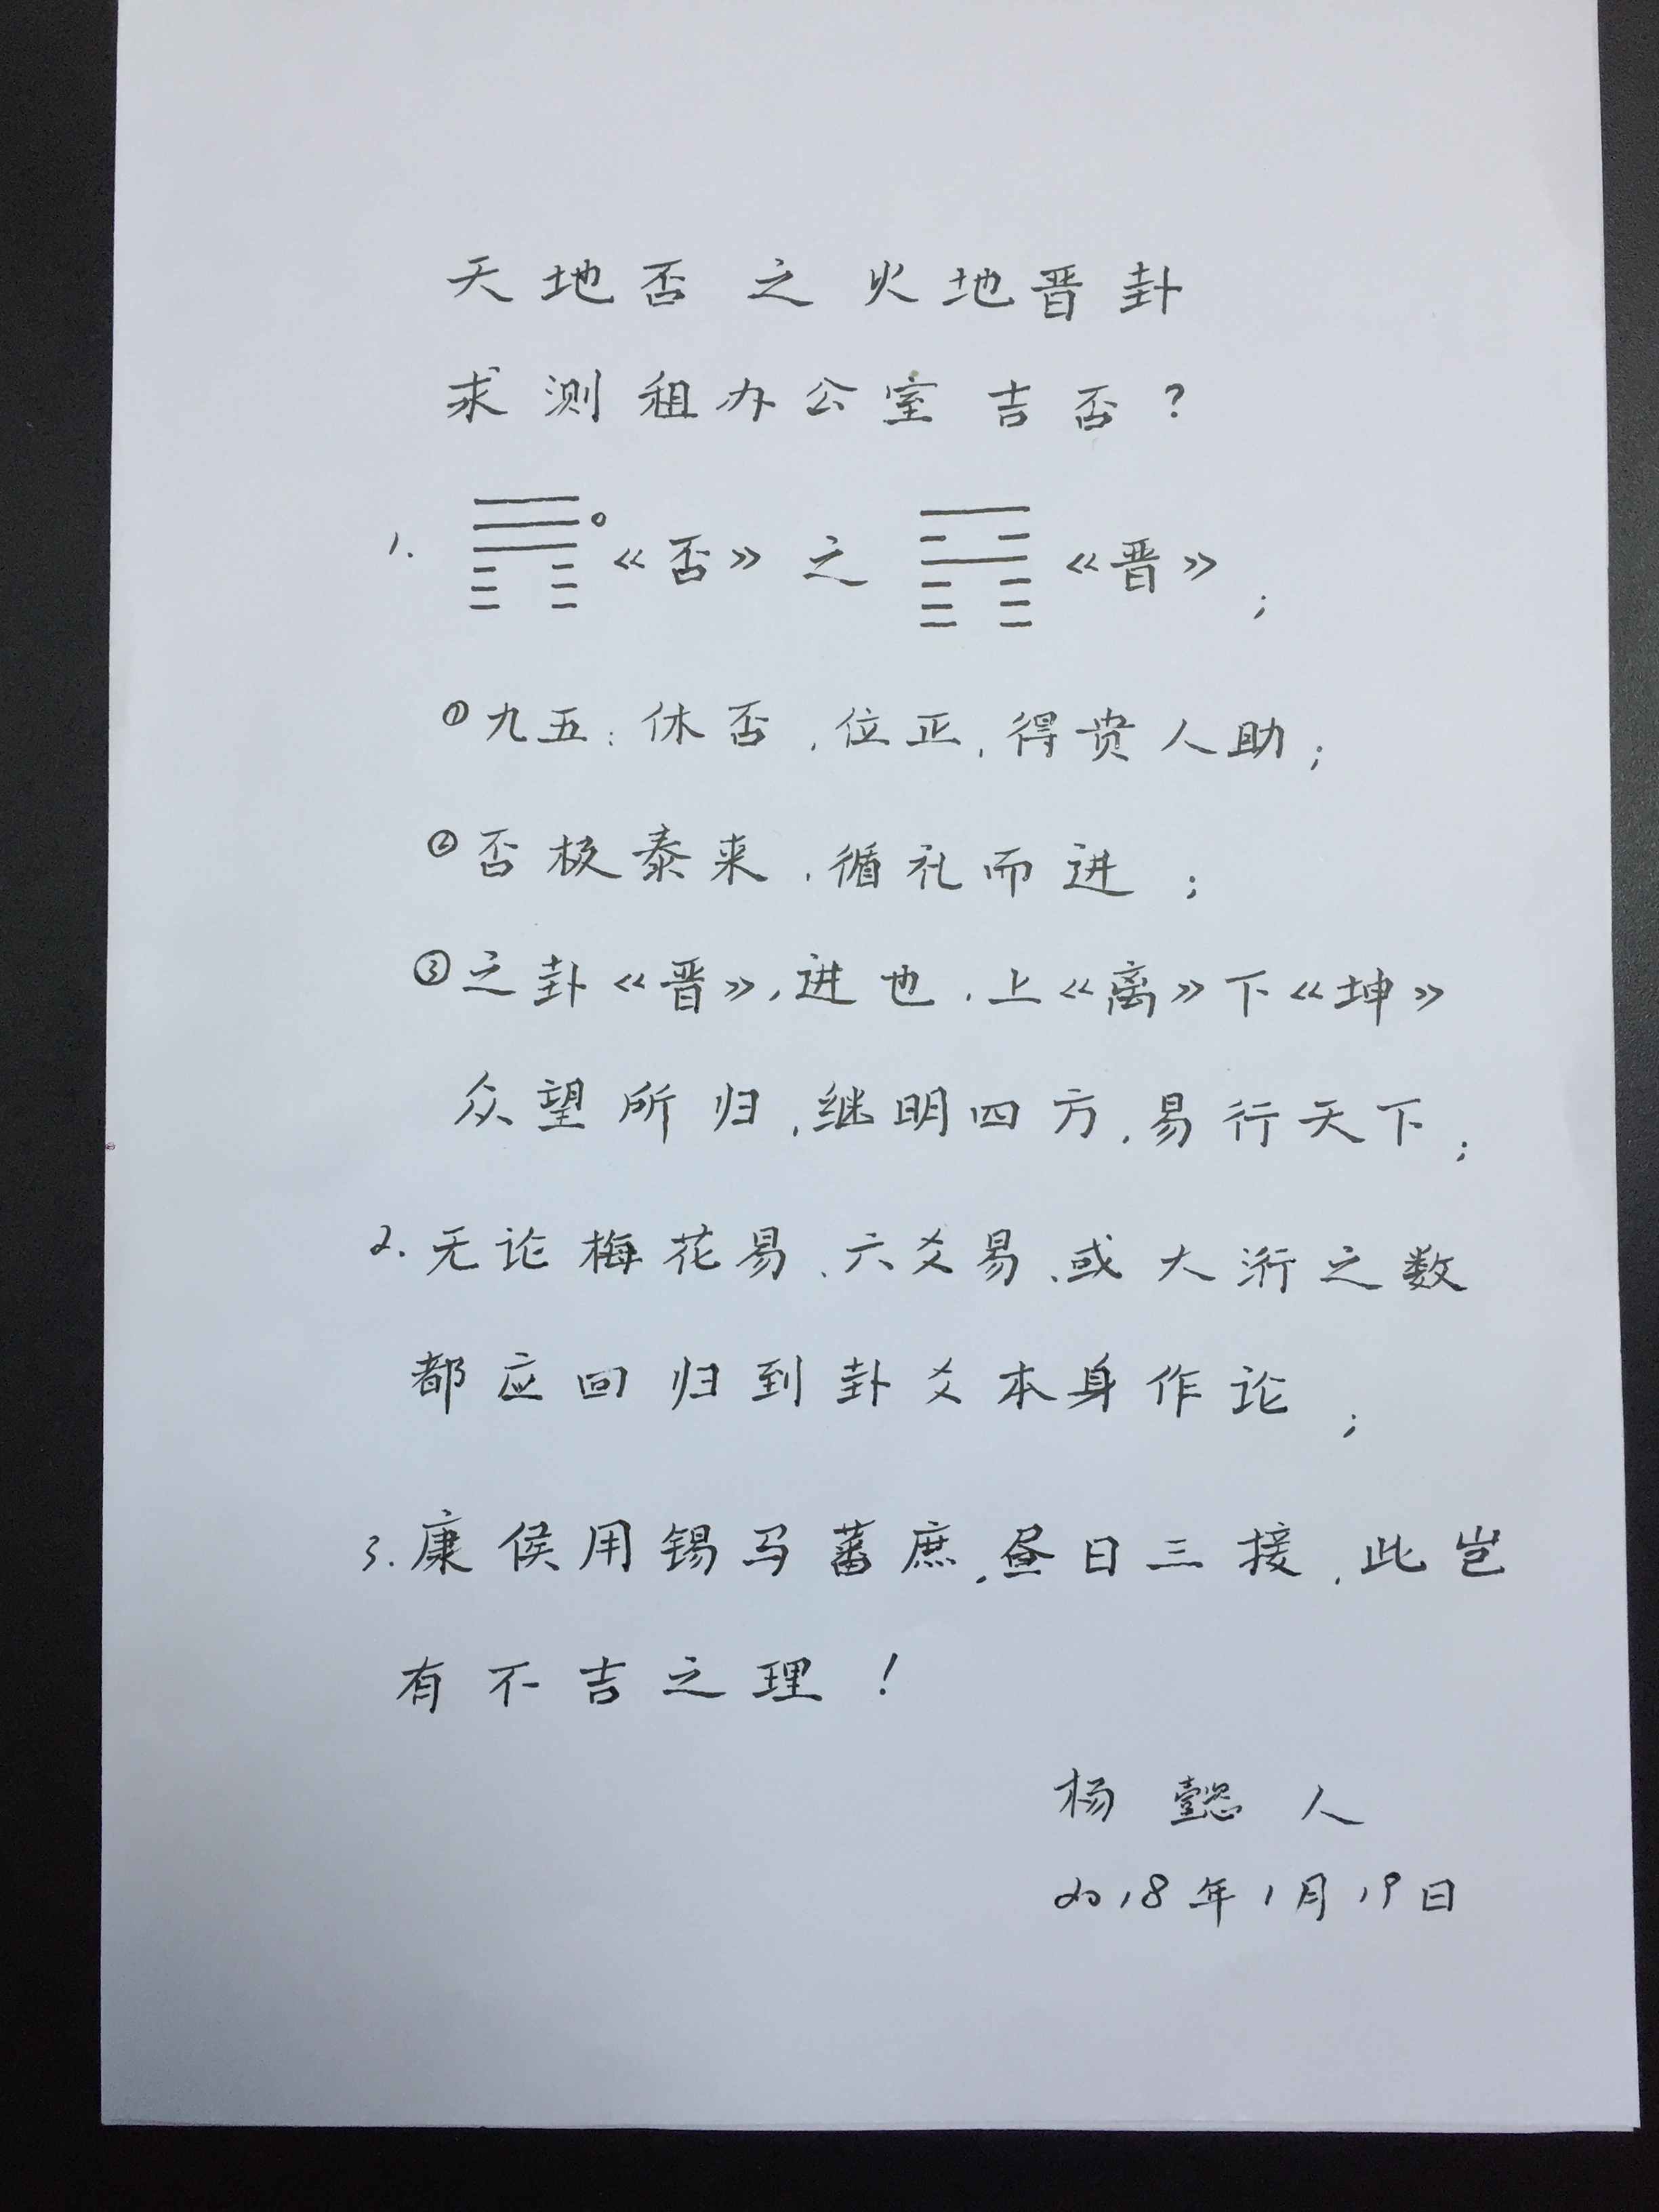 天地否之火地晋卦
求测租办公室吉否？
1. 《否》之《晋》；
①九五：休否，位正，得贵人助；
②否极泰来，循礼而进；
③之卦《晋》，进也，上《离》下《坤》
众望所归，继明四方，易行天下；
2.无论梅花易、六爻易、或大洐之数
都应回归到卦爻本身作论；
3.康侯用锡马蕃庶，昼日三接，此岂
有不吉之理！
杨懿人
2018年1月19日